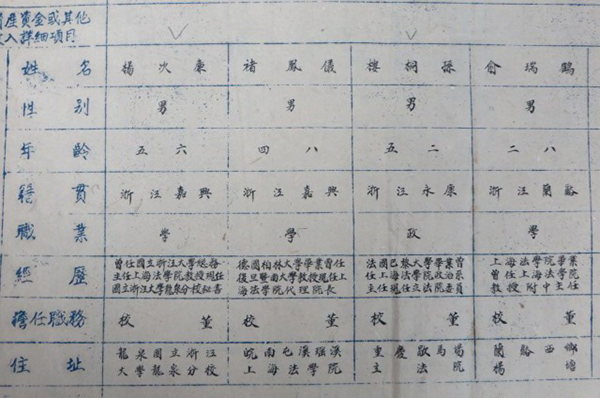 產資金或其他
收入詳細項目
姓名 楊次廉 褚鳳儀 樓桐孫 俞瑞鵬
性別 男 男 男 男
年齡 五六 四八 五二 二八
籍貫 浙江嘉興 浙江嘉興 浙江永康 浙江蘭谿
職業 學 學 政 學
經歷 曾任國立浙江大學 德國柏林大學畢業曾任 法國巴黎大學畢業曾 上海法學院畢業
主任上海法學院教授現任 復旦暨南大學教授現任上 任上海法學院政治系 曾任上海法學院
國立浙江大學龍泉分校秘書 海法學院代理院長 主任現任立法院委員 教授附中主任
擔任職務 校董 校董 校董 校董
住址 龍泉國立浙江 皖南屯溪瑤溪 重慶歇馬場 蘭谿西鄉
大學龍泉分校 上海法學院 立法院 楊塘